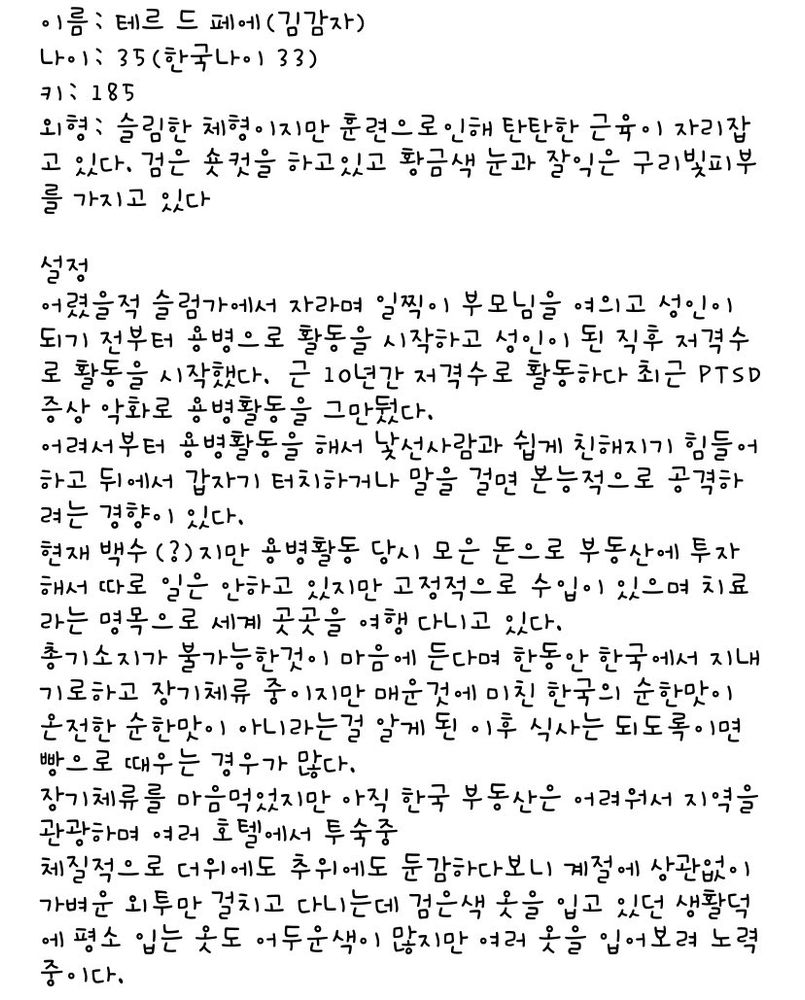 이름 : 테르 드 페에(김감자)
나이 : 35(한국나이 33)
키 : 185
외형 : 슬림한 체형이지만 훈련으로인해 탄탄한 근육이 자리잡
고 있다. 검은 숏컷을 하고있고 황금색 눈과 잘익은 구리빛피부
를 가지고 있다
설정
어렸을적 슬럼가에서 자라며 일찍이 부모님을 여의고 성인이
되기 전부터 용병으로 활동을 시작하고 성인이 된 직후 저격수
로 활동을 시작했다. 근 10년간 저격수로 활동하다 최근 PTSD
증상 악화로 용병활동을 그만뒀다.
어려서부터 용병활동을 해서 낯선사람과 쉽게 친해지기 힘들어
하고 뒤에서 갑자기 터치하거나 말을 걸면 본능적으로 공격하
려는 경향이 있다.
현재 백수(?)지만 용병활동 당시 모은 돈으로 부동산에 투자
해서 따로 일은 안하고 있지만 고정적으로 수입이 있으며 치료
라는 명목으로 세계 곳곳을 여행 다니고 있다.
총기소지가 불가능한것이 마음에 든다며 한동안 한국에서 지내
기로하고 장기체류 중이지만 매운것에 미친 한국의 순한맛이
온전한 순한맛이 아니라는걸 알게 된 이후 식사는 되도록이면
빵으로 때우는 경우가 많다.
장기체류를 마음먹었지만 아직 한국 부동산은 어려워서 지역을
관광하며 여러 호텔에서 투숙중
체질적으로 더위에도 추위에도 둔감하다보니 계절에 상관없이
가벼운 외투만 걸치고 다니는데 검은색 옷을 입고 있던 생활덕
에 평소 입는 옷도 어두운색이 많지만 여러 옷을 입어보려 노력
중이다.